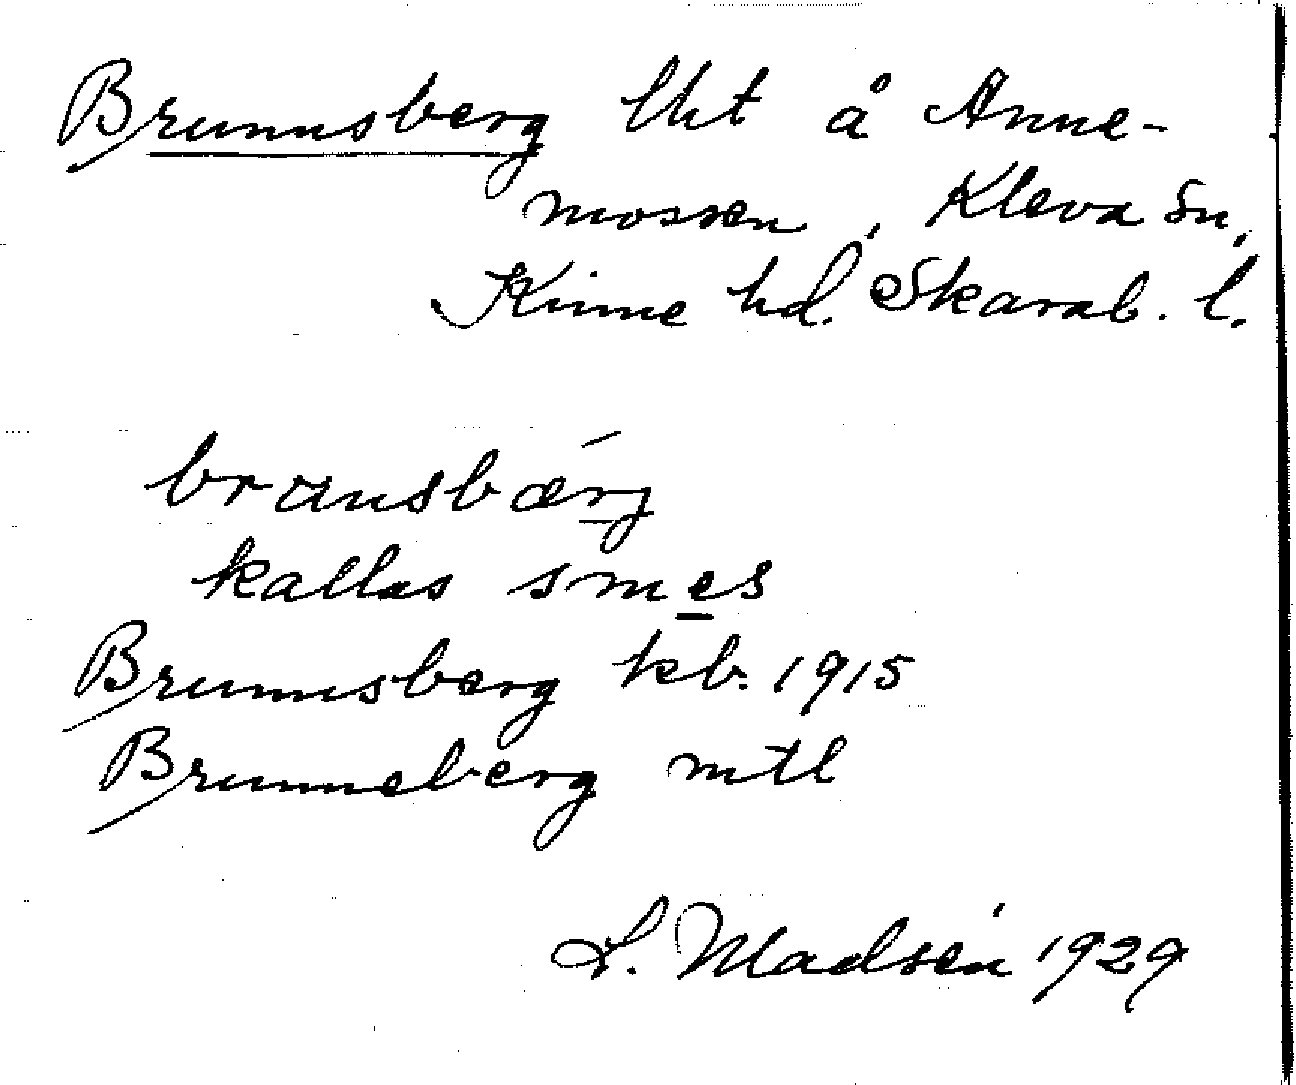 Brunnsberg lht å Anne-
mossen, Kleva sn,
Kinne hd. Skarab. l.
bransbærj
kallas smes
Brunnsberg kb. 1915
Brunneberg mtl
L. Madsén 1929